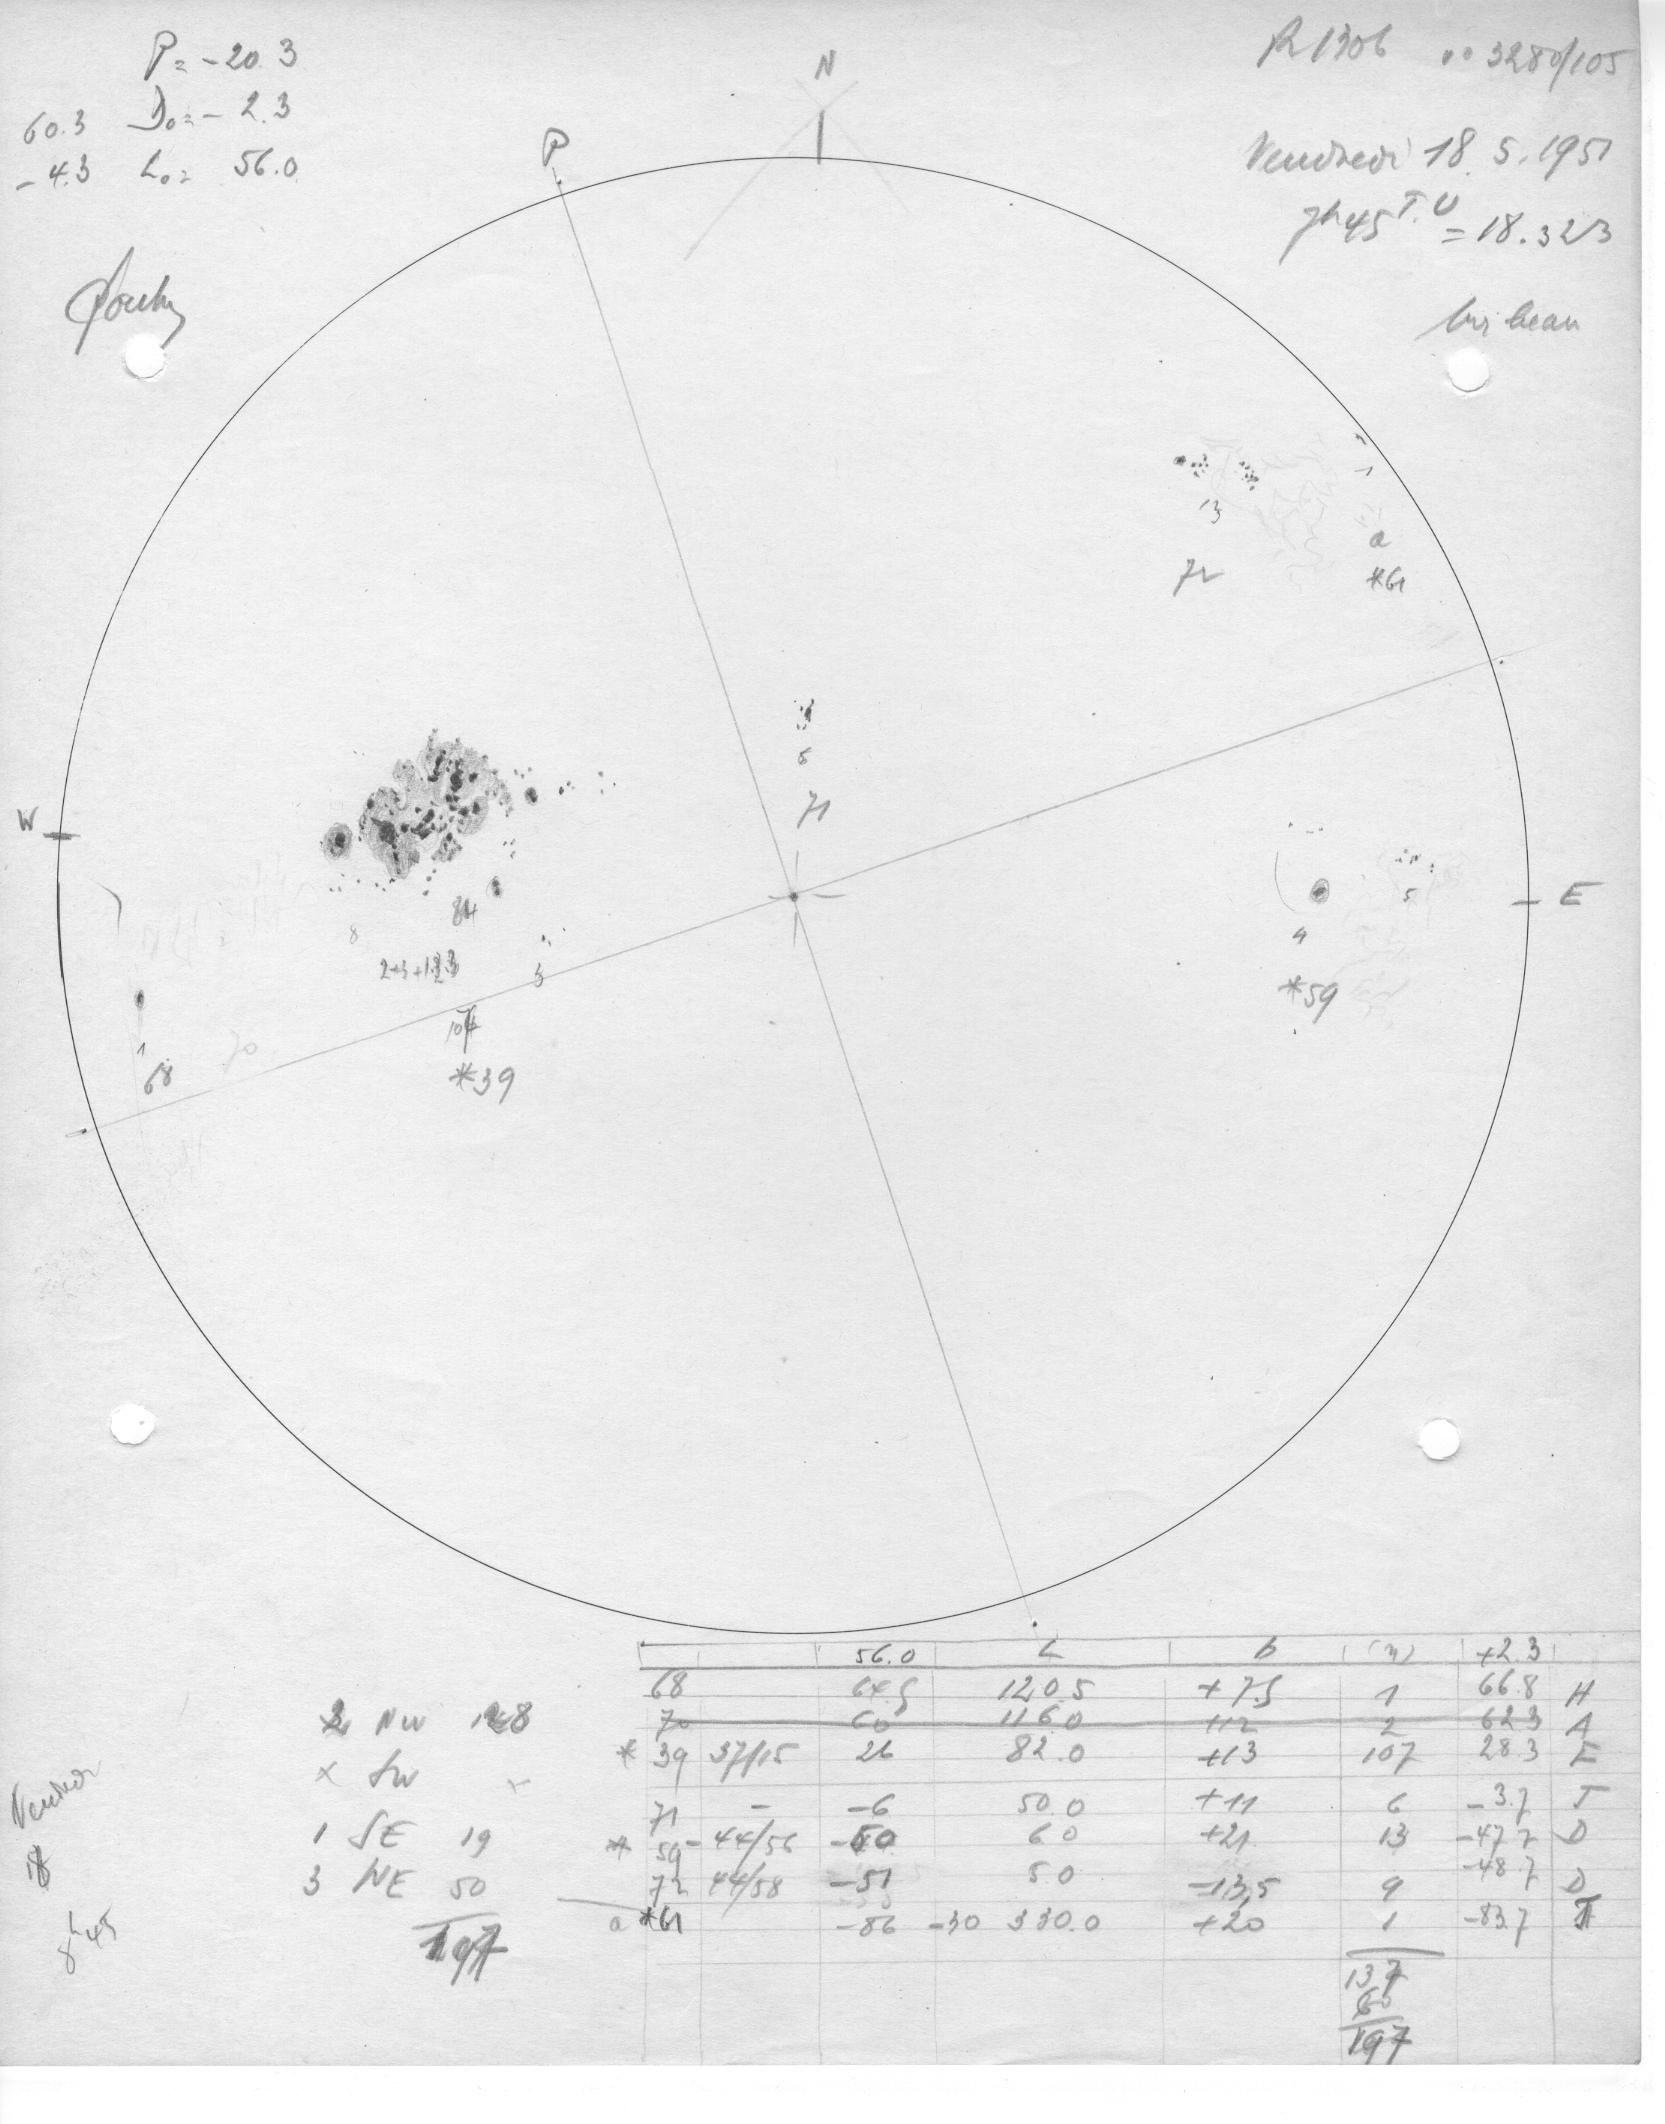 P = -20.3
60.3 D₀ = - 2.3
- 4.3 L₀ = 56.0
N
P
R 1306 3280/105
Vendredi 18.5.1951
7h45 T.U = 18.323
très beau
1
13
a
72
*61
6
71
W
E
84
8
2+3+1
3
5
4
*59
107
*39
1
68
70
56.0 L b (n) +2.3
68 64.5 120.5 +7.5 1 66.8 H
70 60 116.0 +12 2 62.3 A
* 39 37/15 26 82.0 +13 107 28.3 E
71 - -6 50.0 +11 6 -3.7 J
* 59 44/56 -50 6.0 +21 13 -47.7 D
72 44/58 -51 5.0 -13.5 9 -48.7 D
a *61 -86 -30 330.0 +20 1 -83.7 J
137
60
197
NW 128
x SW x
1 SE 19
3 NE 50
197
18
8h45